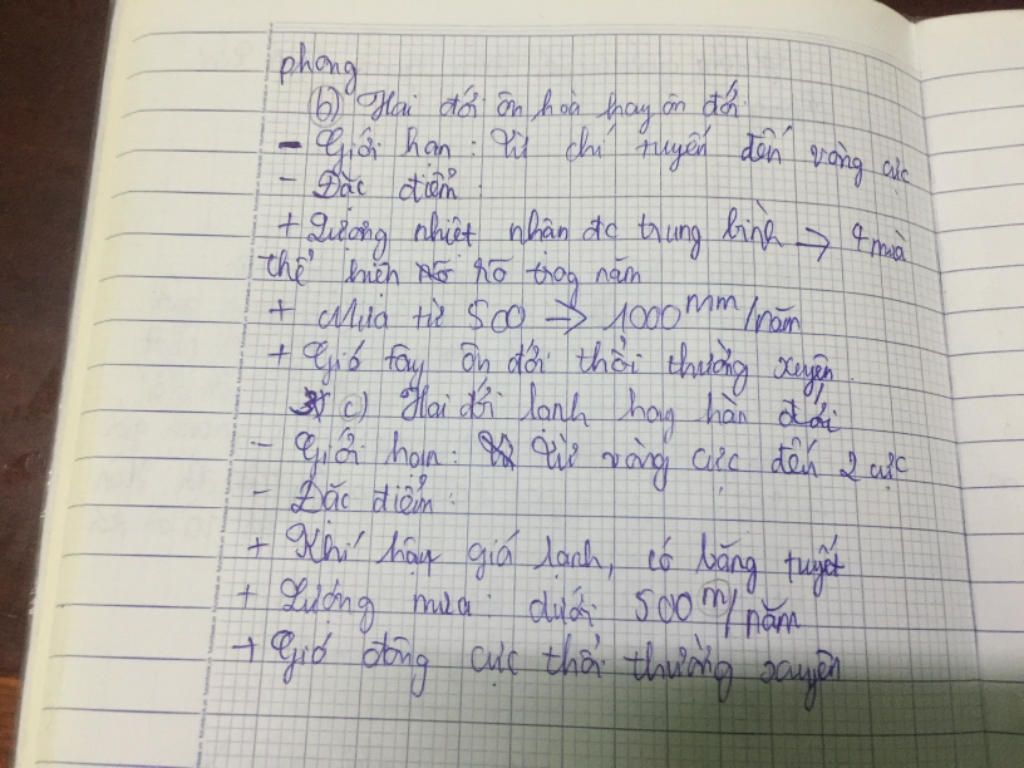 phong
b) Hai đới ôn hoà hay ôn đới
- Giới hạn: Từ chí tuyến đến vòng cực
- Đặc điểm:
+ Lượng nhiệt nhận đc trung bình → 4 mùa
thể hiện rõ trog năm
+ Mưa từ 500 → 1000mm/năm
+ Gió tây ôn đới thổi thường xuyên.
c) Hai đới lạnh hay hàn đới
- Giới hạn: Từ vòng cực đến 2 cực
- Đặc điểm:
+ Khí hậu giá lạnh, có băng tuyết
+ Lượng mưa: dưới 500m/năm
+ Gió đông cực thổi thường xuyên